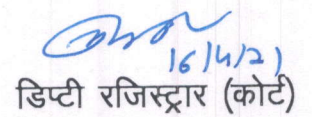 16/4/21
डिप्टी रजिस्ट्रार (कोर्ट)